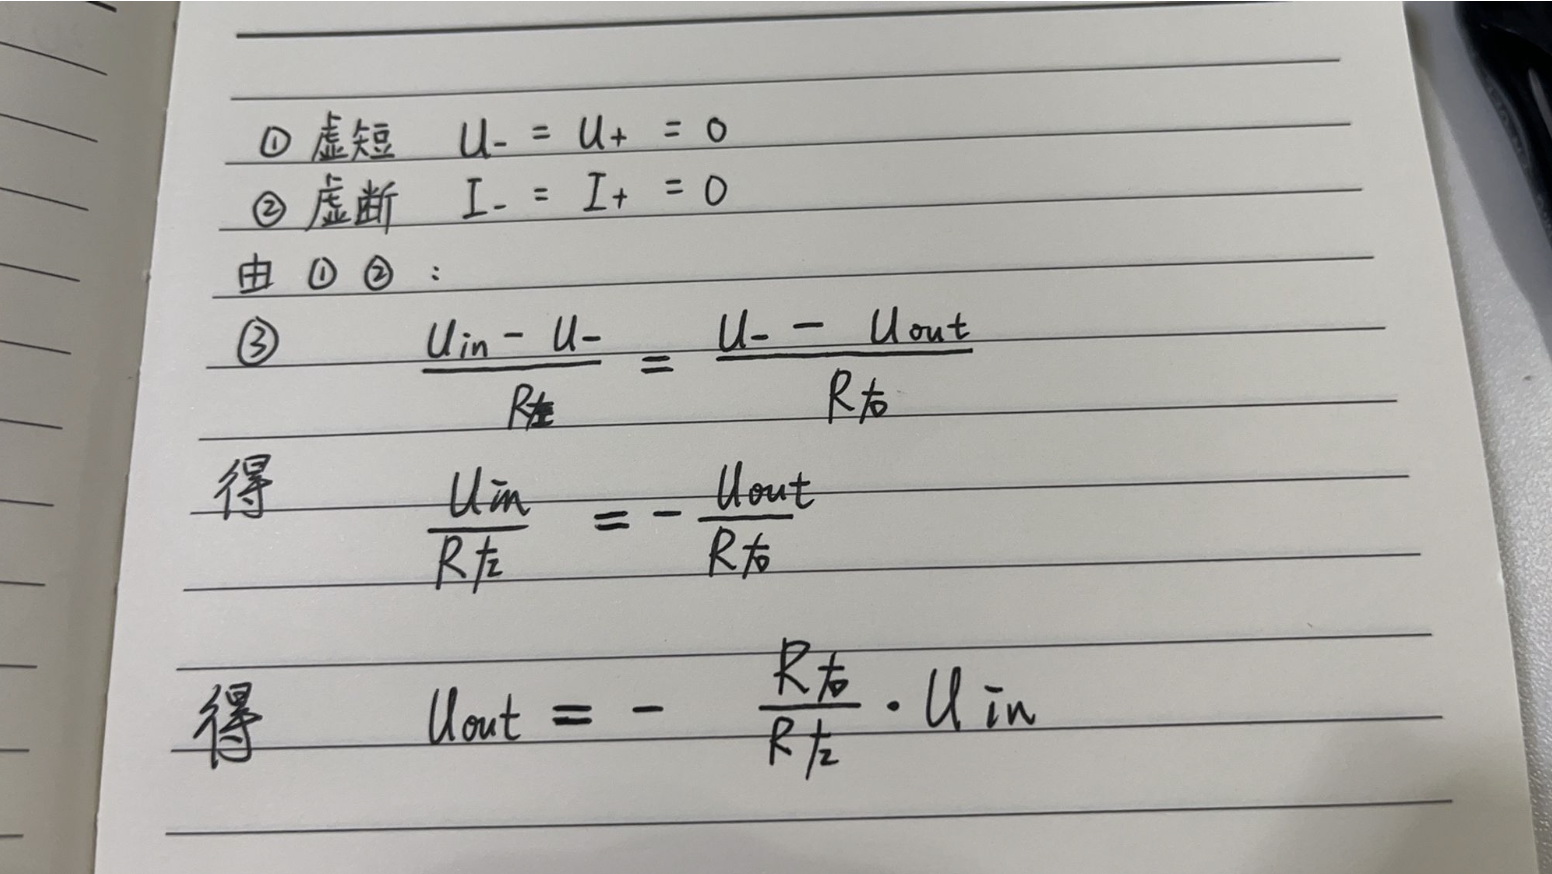 ① 虚短 U- = U+ = 0
② 虚断 I- = I+ = 0
由 ① ② :
③ (Uin - U-)/R左 = (U- - Uout)/R右
得 Uin/R左 = - Uout/R右
得 Uout = - R右/R左 · Uin